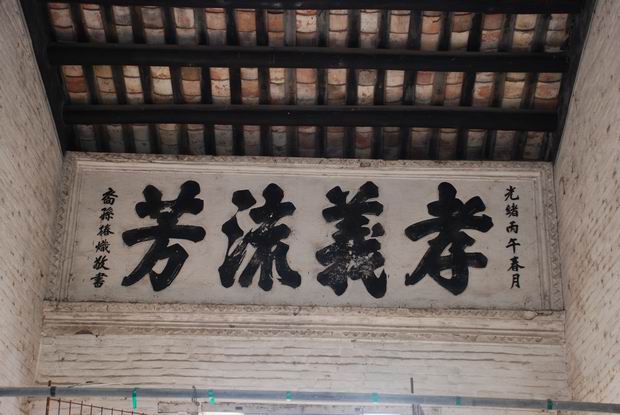 光緒丙午春月
孝義流芳
裔孫椿熾敬書